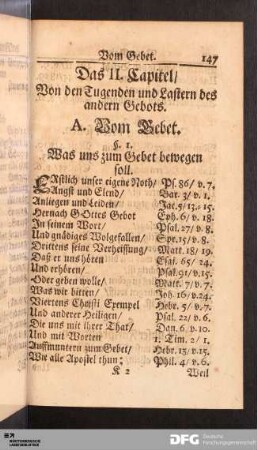 Vom Gebet. 147
Das II. Capitel/
Von den Tugenden und Lastern des
andern Gebots.
A. Vom Gebet.
§. 1.
Was uns zum Gebet bewegen
soll.
ERstlich unser eigene Noth/ Ps. 86/ v. 7.
Angst und Elend/ Bar. 3/ v. 1.
Anliegen und Leiden/ Jac. 5/ 13. 15.
Hernach GOttes Gebot Eph. 6/ v. 18.
In seinem Wort/ Psal. 27/ v. 8.
Und gnädiges Wolgefallen/ Spr. 15/ v. 8.
Drittens seine Verheissung/ Matt. 18/ 19.
Daß er uns hören Esai. 65/ 24.
Und erhören/ Psal. 91/ v. 15.
Oder geben wolle/ Matt. 7/ v. 7.
Was wir bitten/ Joh. 16/ v. 24.
Viertens Christi Exempel Hebr. 5/ v. 7.
Und anderer Heiligen/ Psal. 22/ v. 6.
Die uns mit ihrer That/ Dan. 6. v. 10.
Und mit Worten 1. Tim. 2/ 1.
Auffmuntern zum Gebet/ Hebr. 13/ v. 15.
Wie alle Apostel thun: Phil. 4/ v. 6.
K 2 Weil
DFG Deutsche
Forschungsgemeinschaft